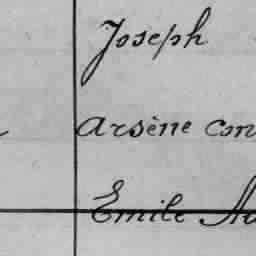 Joseph
Arsène
Emile